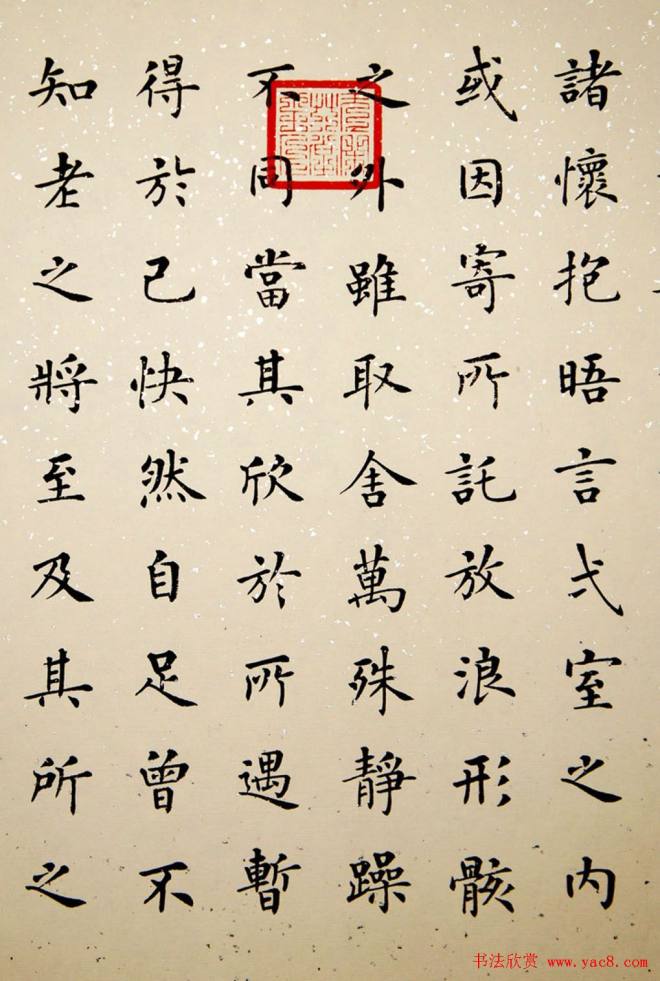 諸懷抱晤言弌室之内
或因寄所託放浪形骸
之外雖取舍萬殊靜躁
不同當其欣於所遇暫
得於己快然自足曾不
知老之將至及其所之
书法欣赏 www.yac8.com